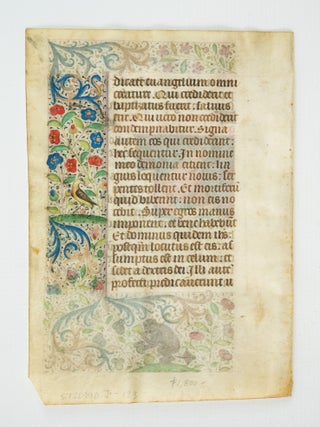 dicate euangelium omni
creature. Qui crediderit et
baptizatus fuerit: saluus
erit. Qui uero non crediderit
condempnabitur. Signa
autem eos qui crediderint:
hec sequentur. In nomine
meo demonia eicient. lin
guis loquentur nouis: ser
pentes tollent. Et mortiferū
quid biberint: non eis no
cebit. Super egros manus
imponent: et bene habebūt
Et dominus quidem ihs:
posteaqm locutus est eis: as
sumptus est in celum: et
sedet a dextris dei. Illi autē
profecti predicauerunt u
$1,800-